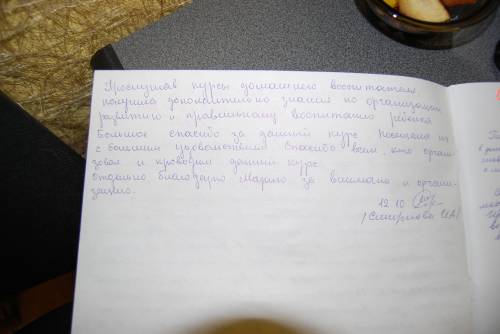 Прослушав курсы домашнего воспитателя
получила дополнительно знания по организации
развитию и правильному воспитанию ребенка
Большое спасибо за данный курс посещала их
с большим удовольствием. Спасибо всем, кто орган-
зовал и проводил данный курс.
Отдельно благодарю Марию за внимание и органи-
зацию.
12.10
/Смирнова